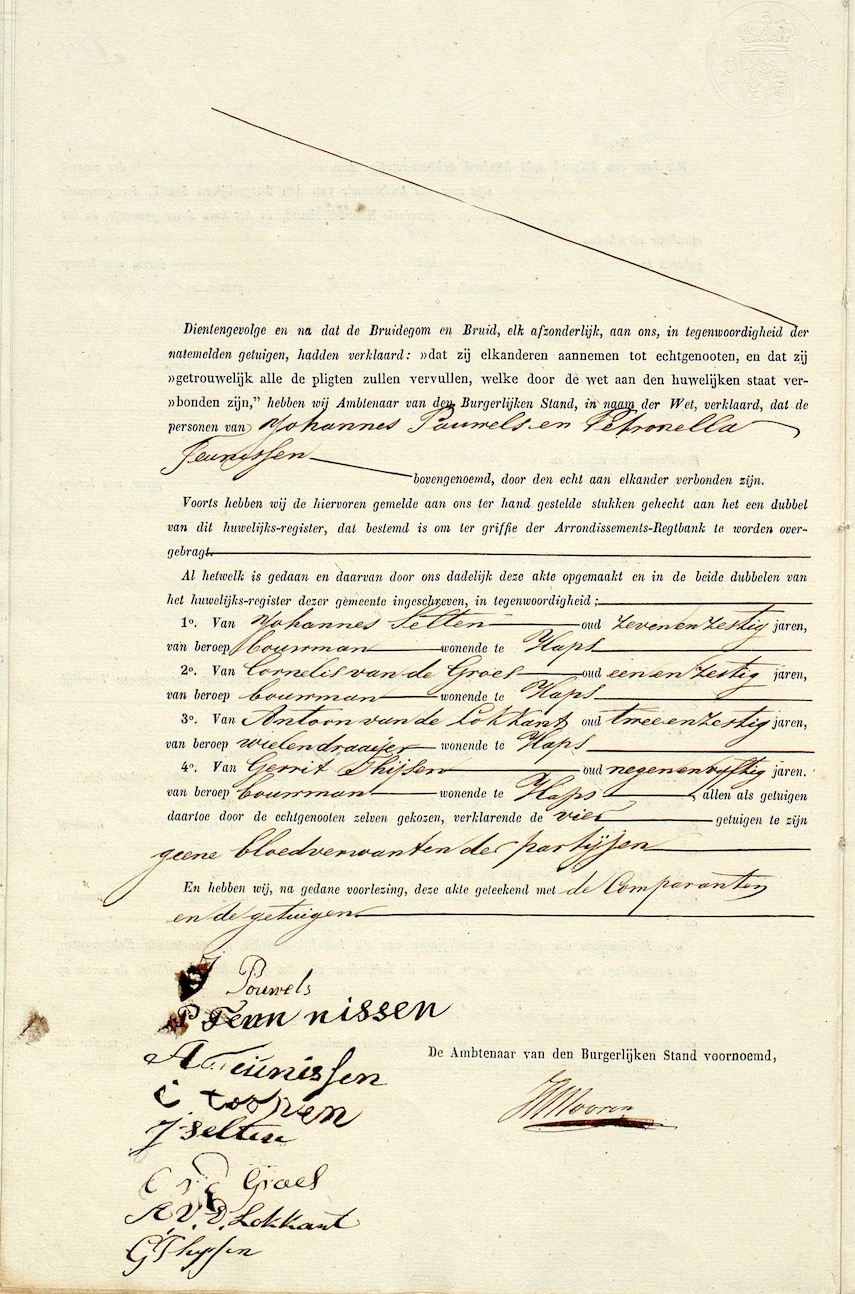 Dientengevolge en na dat de Bruidegom en Bruid, elk afzonderlijk, aan ons, in tegenwoordigheid der
natemelden getuigen, hadden verklaard: »dat zij elkanderen aannemen tot echtgenooten, en dat zij
»getrouwelijk alle de pligten zullen vervullen, welke door de wet aan den huwelijken staat ver-
»bonden zijn,” hebben wij Ambtenaar van den Burgerlijken Stand, in naam der Wet, verklaard, dat de
personen van Johannes Pauwels en Petronella
Teunissen bovengenoemd, door den echt aan elkander verbonden zijn.
Voorts hebben wij de hiervoren gemelde aan ons ter hand gestelde stukken gehecht aan het een dubbel
van dit huwelijks-register, dat bestemd is om ter griffie der Arrondissements-Regtbank te worden over-
gebragt.
Al hetwelk is gedaan en daarvan door ons dadelijk deze akte opgemaakt en in de beide dubbelen van
het huwelijks-register dezer gemeente ingeschreven, in tegenwoordigheid:
1o. Van Johannes Selten oud zevenenzestig jaren,
van beroep bouwman wonende te Haps
2o. Van Cornelis van de Groes oud eenenzestig jaren,
van beroep bouwman wonende te Haps
3o. Van Antoon van de Lokkant oud tweeenzestig jaren,
van beroep wielendraaijer wonende te Haps
4o. Van Gerrit Thijsen oud negenenvyftig jaren.
van beroep bouwman wonende te Haps, allen als getuigen
daartoe door de echtgenooten zelven gekozen, verklarende de vier getuigen te zijn
geene bloedverwanten der partijen
En hebben wij, na gedane voorlezing, deze akte geteekend met de Comparanten
en de getuigen.
J Pouwels
P Teun nissen
A Teunissen
De Ambtenaar van den Burgerlijken Stand voornoemd,
J Selten
C v d Groes
A. V. D. Lokkant
G Thyssen